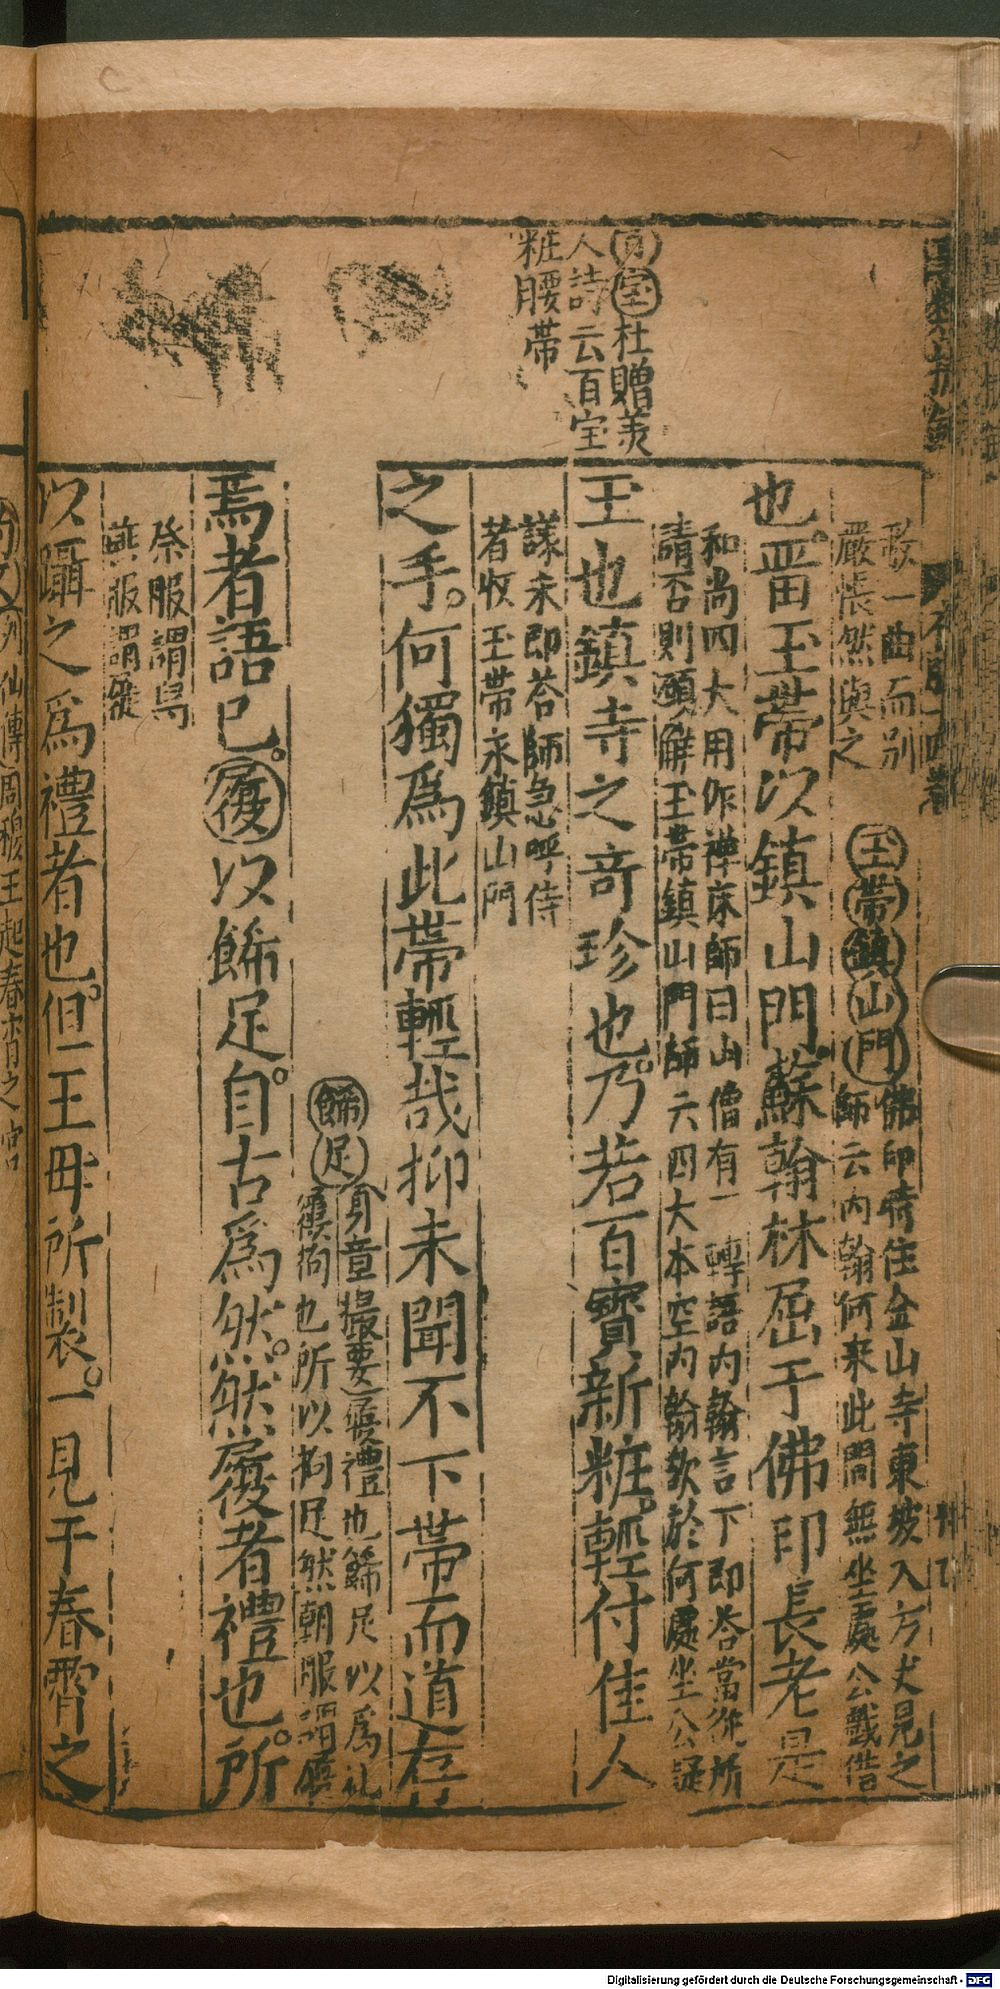 百宝杜贈美
人詩云百宝
粧腰帶
敬一曲而別
嚴悵然與之
玉帶鎮山門佛印時住金山寺東坡入方丈見之
師云内翰何来此間無坐處公戲借
也畱玉帶以鎮山門蘇翰林屈于佛印長老是
和尚四大用作禅床師曰山僧有一轉語内翰言下即答當從所
請否則願解玉帶鎮山門師云四大本空内翰欲於何處坐公疑
玉也鎮寺之奇珍也乃若百寶新粧輕付佳人
議未即荅師急呼侍
者收玉帶永鎮山門
之手何獨爲此帶輕哉抑未聞不下帶而道存
餙足
禮也餙足以爲礼
拘也所以拘足然朝服謂
焉者語已履以餙足自古爲然然履者禮也所
祭服謂舄
燕服謂屨
以躡之爲禮者也但王母所製一見于春霄之
列仙傳周穆王起春宵之宮
Digitalisierung gefördert durch die Deutsche Forschungsgemeinschaft - DFG